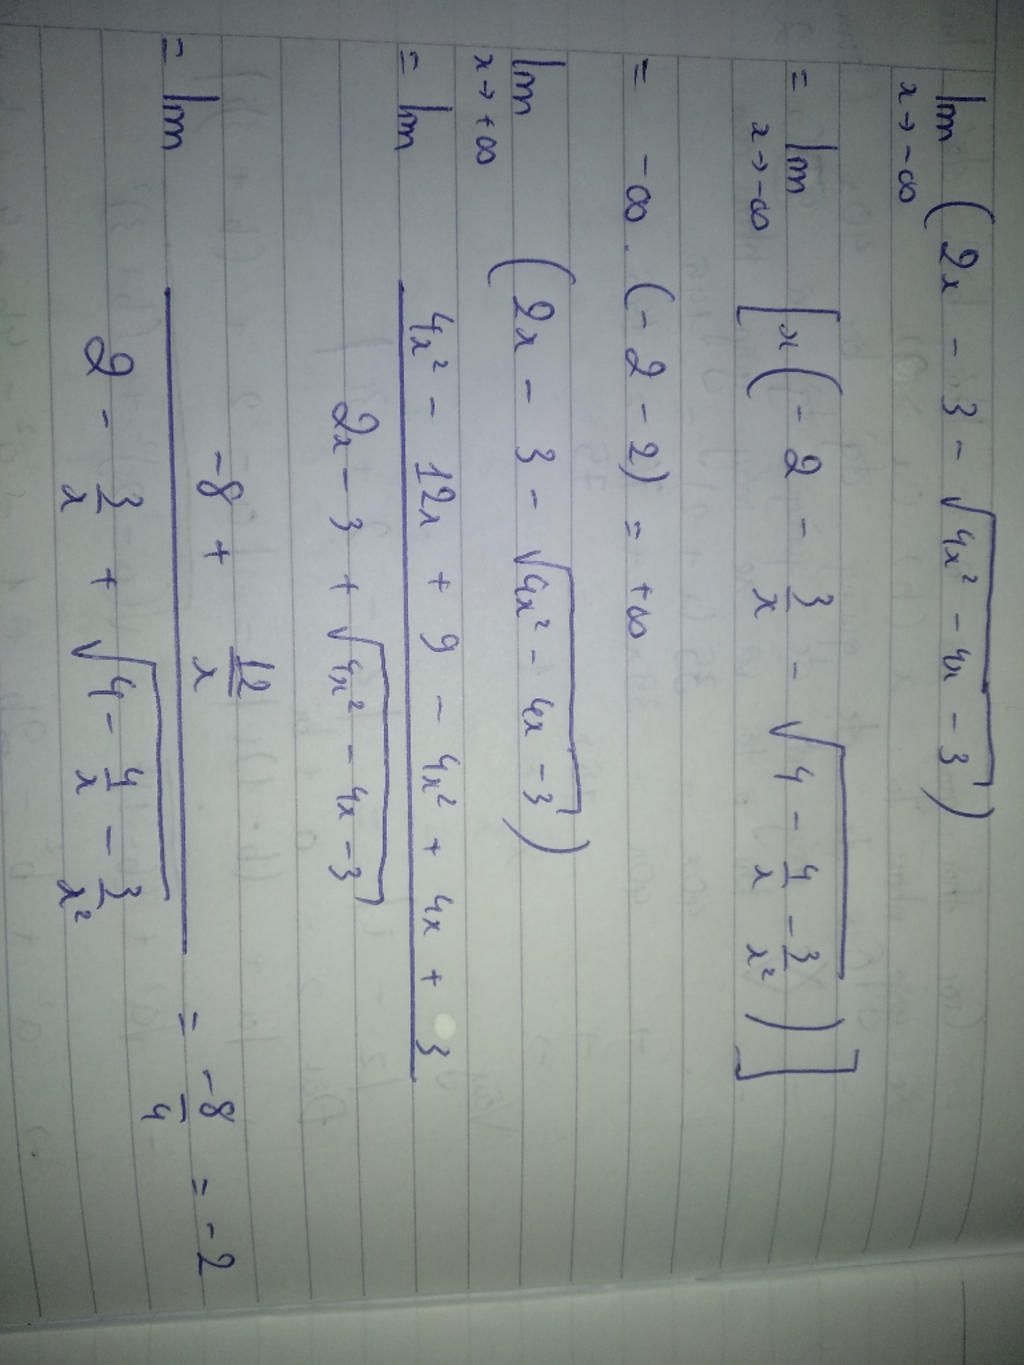 lim x→-∞ (2x - 3 - √(4x² - 4x - 3))
= lim x→-∞ [x(-2 - 3/x - √(4 - 4/x - 3/x²))]
= -∞ . (-2 - 2) = +∞
lim x→+∞ (2x - 3 - √(4x² - 4x - 3))
= lim (4x² - 12x + 9 - 4x² + 4x + 3)/(2x - 3 + √(4x² - 4x - 3))
= lim (-8 + 12/x)/(2 - 3/x + √(4 - 4/x - 3/x²)) = -8/4 = -2